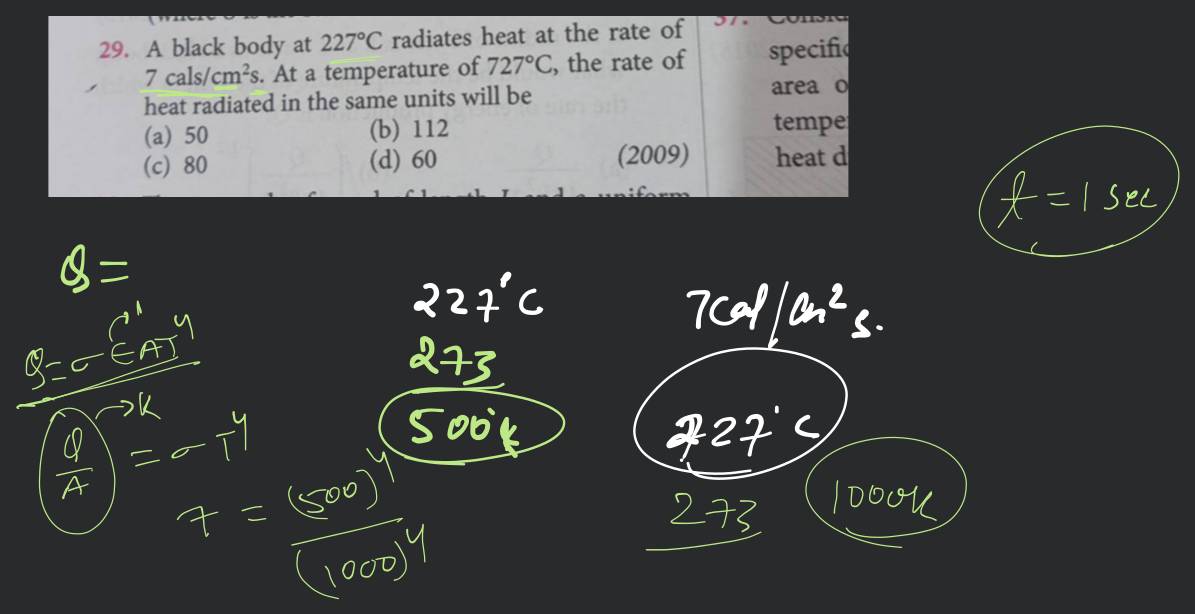 29. A black body at 227°C radiates heat at the rate of
7 cals/cm²s. At a temperature of 727°C, the rate of
heat radiated in the same units will be
(a) 50 (b) 112
(c) 80 (d) 60 (2009)
37.
specific
area o
tempe
heat d
t = 1 sec
Q =
227°C
273
500°K
7 Cal/cm² s.
727°C
273
1000K
1
Q = σ ∈ A T⁴
K
Q/A = σ T⁴
7 = (500)⁴/(1000)⁴